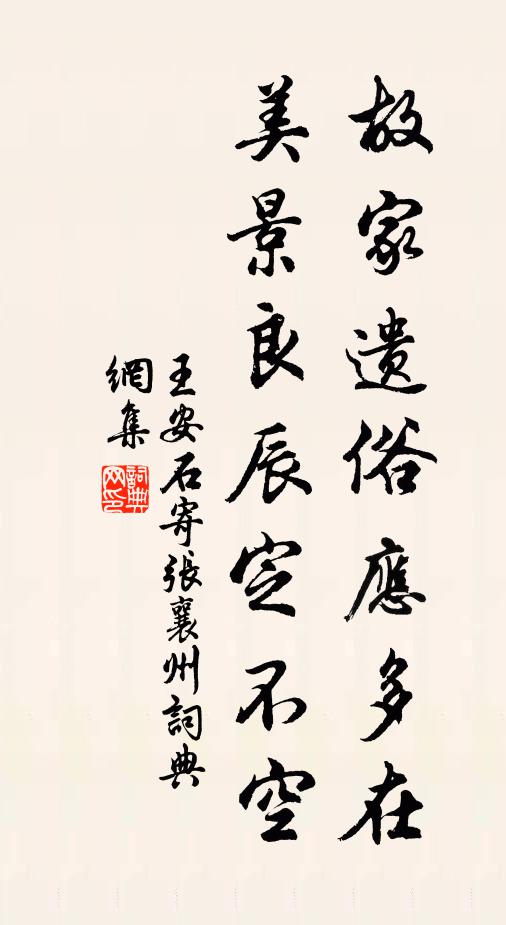 故家遺俗應多在
美景良辰定不空
王安石寄張襄州詞典
網集
詞典
网印